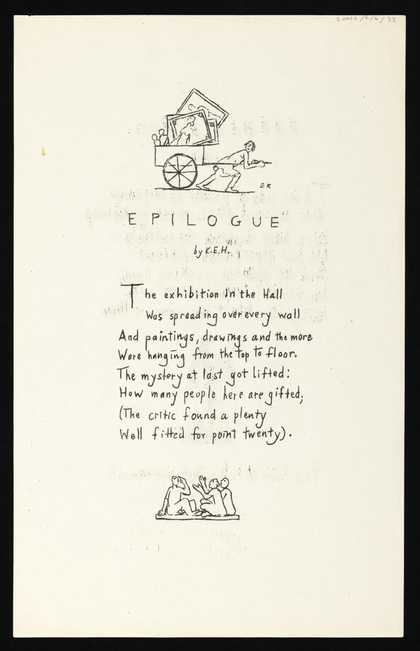 EPILOGUE
by K.E.H.
The exhibition in the Hall
Was spreading over every wall
And paintings, drawings and the more
Were hanging from the top to floor.
The mystery at last got lifted:
How many people here are gifted,
(The critic found a plenty
Well fitted for point twenty).